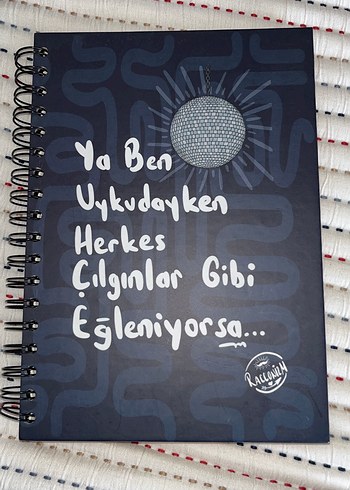 Ya Ben
Uykudayken
Herkes
Çılgınlar Gibi
Eğleniyorsa...